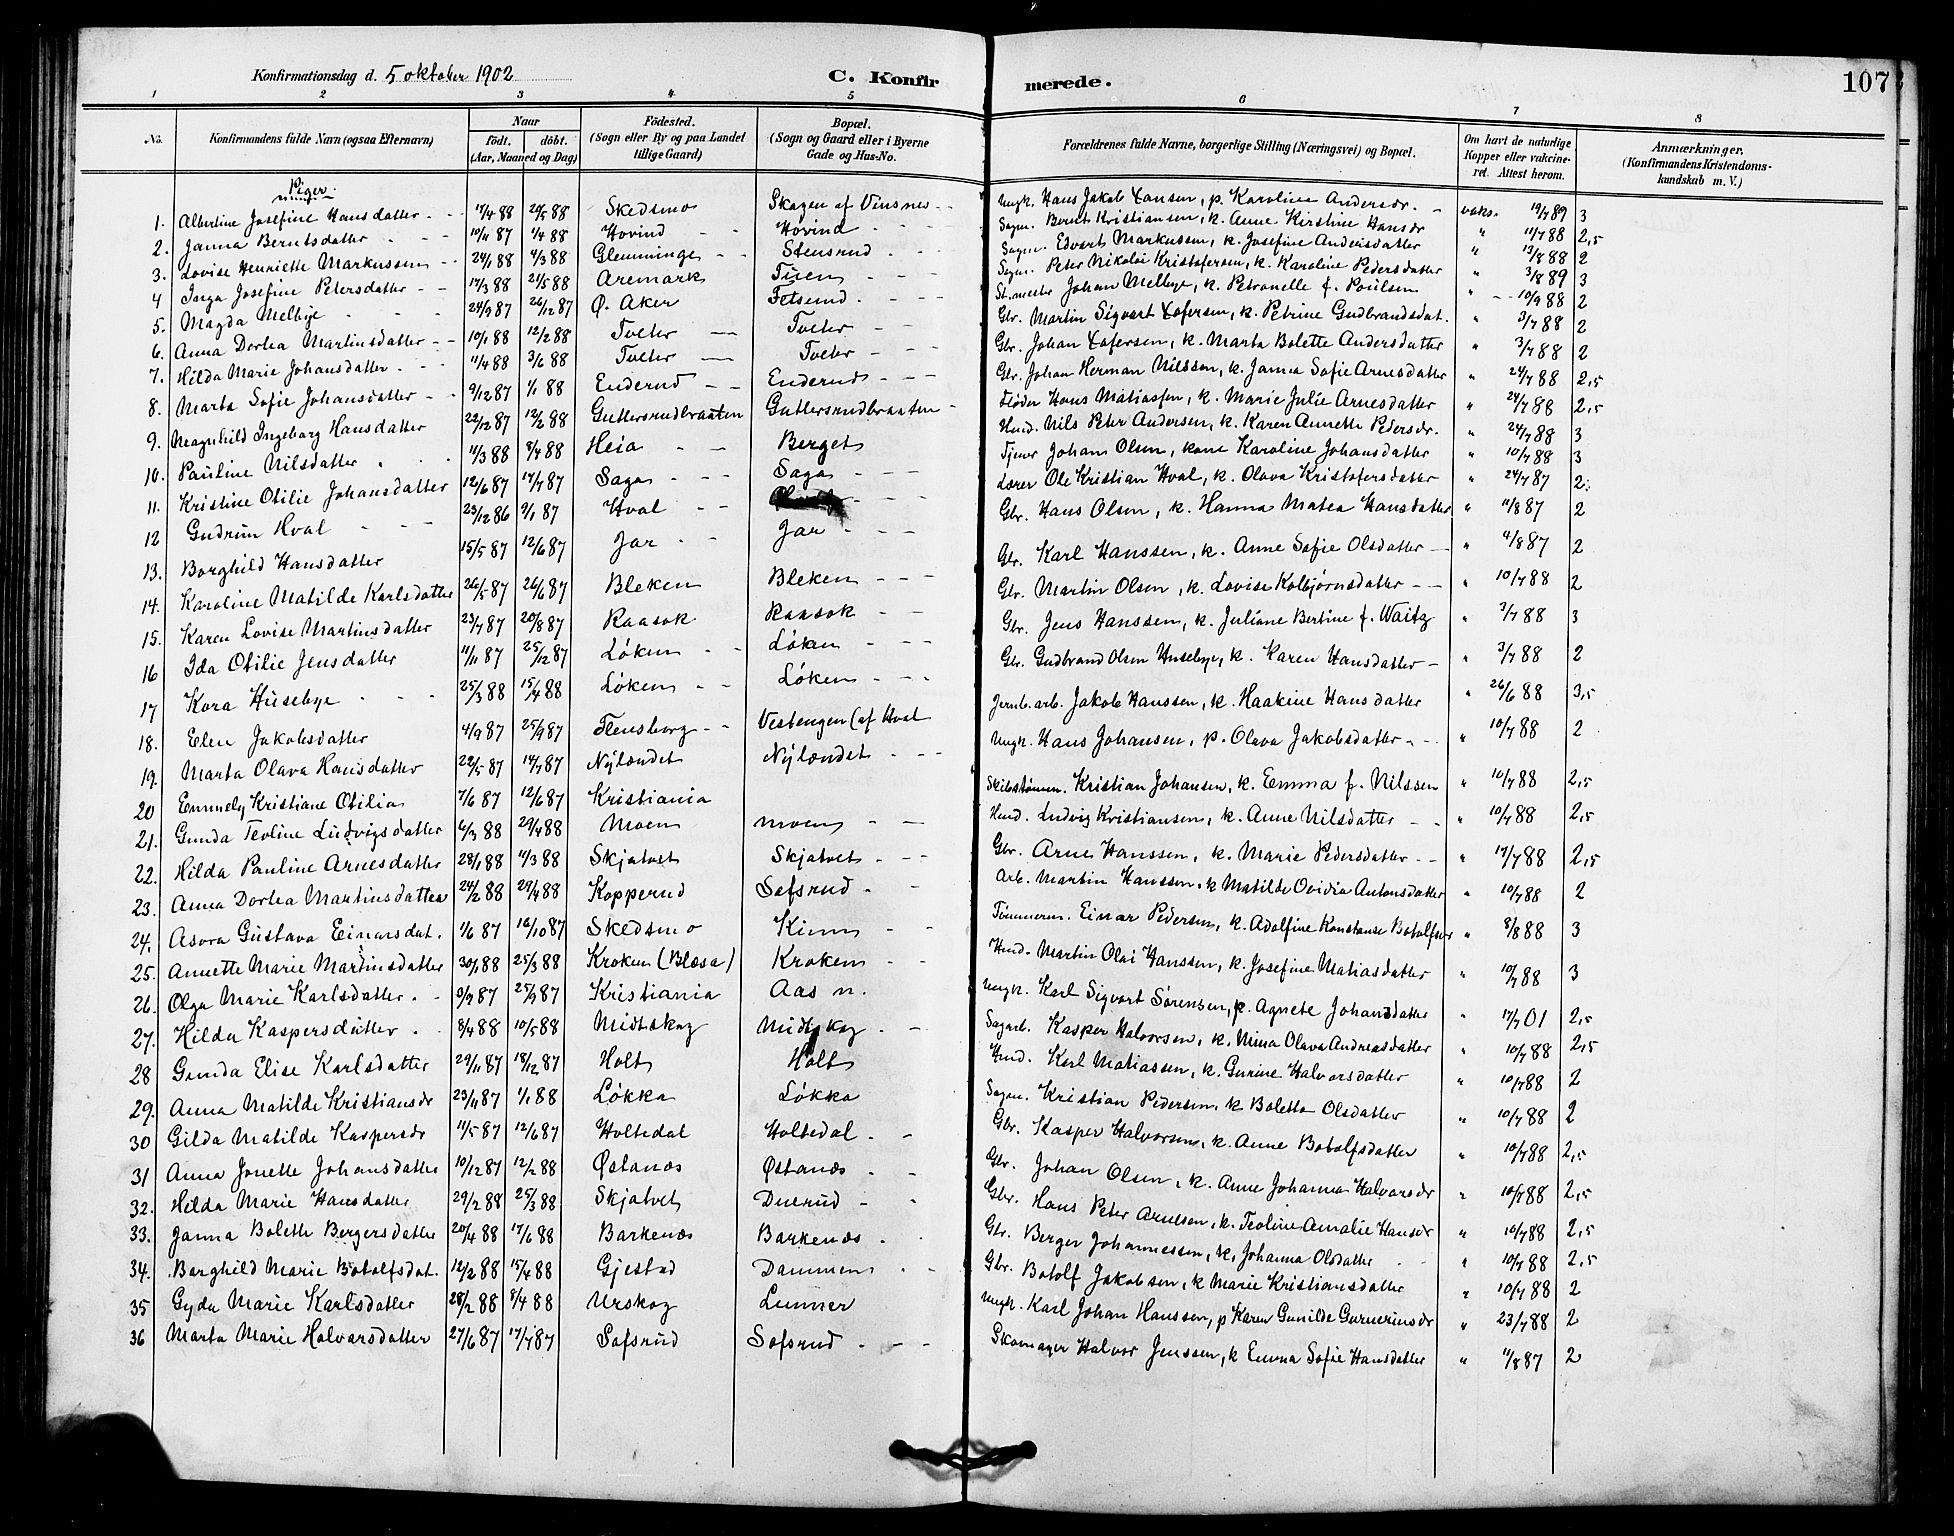 Konfirmationsdag d. 5 oktober 1902 C. Konfirmerede. 107
1 2 3 4 5 6 7 8
No. Konfirmandens fulde Navn (ogsaa Efternavn) Naar født. døbt. (Aar, Maaned og Dag) Fødested. (Sogn eller By og paa Landet tillige Gaard) Bopæl. (Sogn og Gaard eller i Byerne Gade og Hus-No. Forældrenes fulde Navne, borgerlige Stilling (Næringsvei) og Bopæl. Om havt de naturlige Kopper eller vakcineret. Attest herom. Anmærkninger. (Konfirmandens Kristendomskundskab m. V.)
Piger.
1. Albertine Josefine Hansdatter 17/4 88 20/5 88 Skedsmo Skogen af Vinsnes Ungk. Hans Jakob Hansen, p. Karoline Andersdr. vaks. 19/7 89 3
2. Janna Berntsdatter 10/11 87 1/4 88 Hovind Hovind Sagm. Bernt Kristiansen, k. Anne Kirstine Hansdr " 11/7 88 2,5
3. Lovise Henriette Markussen 24/1 88 4/3 88 Glemminge Stensrud Sagm. Edvart Markussen, k. Josefine Andersdatter " 13/8 88 2
4 Inga Josefine Petersdatter 17/3 88 21/5 88 Aremark Tuen Sagm. Peter Nikolai Kristofersen, k. Karoline Pedersdatter " 3/8 89 3
5. Magda Melbye 24/9 87 26/12 87 Ø. Aker Fetsund St.mester Johan Melbye, k. Petronelle f. Poulsen " 10/9 88 2
6. Anna Dortea Martinsdatter 10/1 88 12/2 88 Tveter Tveter Gbr. Martin Sigvart Tofersen, k. Petrine Gudbrandsdat. " 3/7 88 2
7. Hilda Marie Johansdatter 11/4 88 3/6 88 Tveter Tveter Gbr. Johan Tofersen, k. Marta Bolette Andersdatter " 3/7 88 2
8. Marta Sofie Johansdatter 9/12 87 1/1 88 Enderud Enderud Gbr. Johan Herman Nilssen, k. Janna Sofie Arnesdatter " 24/7 88 2,5
9. Magnhild Ingeborg Hansdatter 22/12 87 12/2 88 Guttersrudbraaten Guttersrudbraaten Fløder Hans Matiassen, k. Marie Julie Arnesdatter " 24/7 88 2,5
10. Pauline Nilsdatter 11/3 88 8/4 88 Heia Berget Hmd. Nils Peter Andersen, k. Karen Annette Pedersdr. " 24/7 88 3
11. Kristine Otilie Johansdatter 12/6 87 17/7 87 Saga Saga Tjener Johan Olsen, kone Karoline Johansdatter " 10/7 88 3
12 Gudrun Hval 23/12 86 9/1 87 Hval Lærer Ole Kristian Hval, k. Olava Kristofersdatter " 24/7 87 2
13. Borghild Hansdatter 15/5 87 12/6 87 Jar Jar Gbr. Hans Olsen, k. Hanna Matea Hansdatter " 11/8 87 2
14. Karoline Matilde Karlsdatter 26/5 87 26/6 87 Bleken Bleken Gbr. Karl Hanssen, k. Anne Sofie Olsdatter " 4/8 87 2
15. Karen Lovise Martinsdatter 23/7 87 20/8 87 Raasok Raasok Gbr. Martin Olsen, k. Lovise Kolbjørnsdatter " 10/7 88 2
16 Ida Otilie Jensdatter 11/11 87 25/12 87 Løken Løken Gbr. Jens Hanssen, k. Juliane Bertine f. Waitz " 3/7 88 3
17 Kora Husebye 25/3 88 15/4 88 Løken Løken Gbr. Gudbrand Olsen Husebye, k. Karen Hansdatter " 3/7 88 2
18. Elen Jakobsdatter 4/9 87 25/9 87 Flensborg Vestengen (af Hval Jernb.arb. Jakob Hanssen, k. Haakine Hansdatter " 26/6 88 3,5
19. Marta Olava Hansdatter 22/5 87 14/7 87 Nylændet Nylændet Ungk. Hans Johansen, p. Olava Jakobsdatter " 10/7 88 2
20 Emmely Kristiane Otilia 7/6 87 12/6 87 Kristiania Skibstømm. Kristian Johansen, k. Emma f. Nilssen " 10/7 88 2,5
21. Gunda Teoline Ludvigsdatter 6/3 88 29/4 88 Moen Moen Hmd. Ludvig Kristiansen, k. Anne Nilsdatter " 10/7 88 2,5
22. Hilda Pauline Arnesdatter 28/1 88 11/3 88 Skjatvet Skjatvet Gbr. Arne Hanssen, k. Marie Pedersdatter " 17/7 88 2,5
23. Anna Dortea Martinsdatter 24/2 88 29/4 88 Kopperud Sofsrud Arb. Martin Hanssen, k Matilde Ovidia Antonsdatter " 10/7 88 2
24. Asora Gustava Einarsdat. 1/6 87 16/10 87 Skedsmo Kinn Tømmerm. Einar Pedersen, k. Adolfine Konstanse Botolfsdr " 8/8 88 3
25. Annette Marie Martinsdatter 30/1 88 25/3 88 Kroken (Blæsa) Kroken Hmd. Martin Olai Hanssen, k. Josefine Matiasdatter " 10/7 88 3
26. Olga Marie Karlsdatter 9/7 87 25/9 87 Kristiania Aas n. Ungk. Karl Sigvart Sørensen, p. Agnete Johansdatter " 17/7 01 2,5
27. Hilda Kaspersdatter 8/4 88 10/5 88 Midtskog Midtskog Sagarb. Kasper Halvorsen, k. Mina Olava Andreasdatter " 10/7 88 2,5
28 Gunda Elise Karlsdatter 29/11 87 18/12 87 Holt Holt Hmd. Karl Matiassen, k. Gurine Halvorsdatter " 10/7 88 2
29. Anna Matilde Kristiansdr 23/11 87 1/1 88 Løkka Løkka Sagm. Kristian Pedersen, k Bolette Olsdatter " 10/7 88 2
30 Gilda Matilde Kaspersdr 11/5 87 12/6 87 Holtedal Holtedal Gbr. Kasper Halvorsen, k. Anne Botolfsdatter " 10/7 88 2,5
31 Anna Jonette Johansdatter 10/12 87 12/2 88 Østanæs Østanæs Gbr. Johan Olsen, k. Anne Johanna Halvorsdr " 10/7 88 2,5
32. Hilda Marie Hansdatter 29/2 88 25/3 88 Skjatvet Duerud Gbr. Hans Peter Arnesen, k. Teoline Amalie Hansdr " 10/7 88 2,5
33. Janna Bolette Bergersdatter 20/4 88 17/6 88 Barkenæs Barkenæs Gbr. Berger Johannessen, k. Johanna Olsdatter " 10/7 88 2,5
34. Borghild Marie Botolfsdat. 12/2 88 15/4 88 Gjestad Dammen Gbr. Botolf Jakobsen, k Marie Kristiansdatter " 10/7 88 2
35 Gyda Marie Karlsdatter 28/2 88 8/4 88 Urskog Lunner Ungk. Karl Johan Hanssen, p Karen Gunilde Gurnerinsdr " 23/7 88 2
36 Marta Marie Halvorsdatter 27/6 87 17/7 87 Sofsrud Sofsrud Skomager Halvor Jenssen, k Emma Sofie Hansdatter " 11/8 87 2